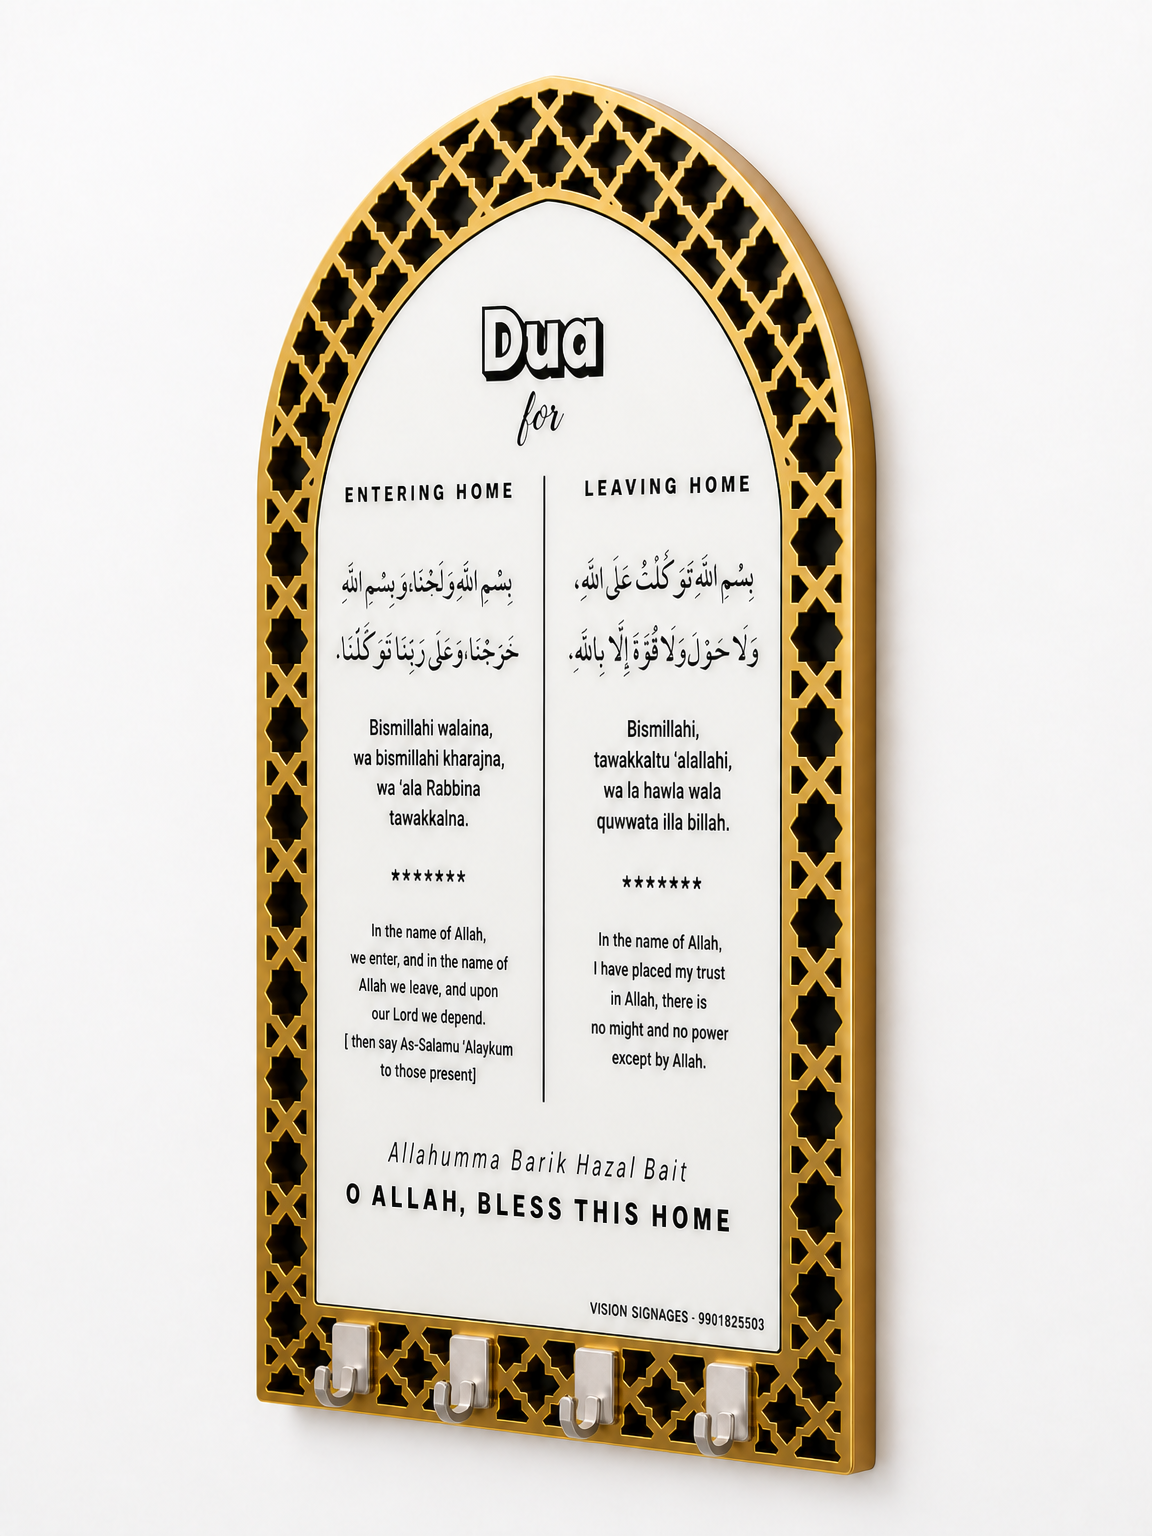 Dua
for
ENTERING HOME
بِسْمِ اللَّهِ وَلَجْنَا، وَبِسْمِ اللَّهِ
خَرَجْنَا، وَعَلَى رَبِّنَا تَوَكَّلْنَا.
Bismillahi walaina,
wa bismillahi kharajna,
wa ‘ala Rabbina
tawakkalna.
*******
In the name of Allah,
we enter, and in the name of
Allah we leave, and upon
our Lord we depend.
[ then say As-Salamu ‘Alaykum
to those present]
LEAVING HOME
بِسُمِ اللَّهِ تَوَكَّلْتُ عَلَى اللَّهِ،
وَلَا حَوْلَ وَلَا قُوَّةَ إِلَّا بِاللَّهِ.
Bismillahi,
tawakkaltu ‘alallahi,
wa la hawla wala
quwwata illa billah.
*******
In the name of Allah,
I have placed my trust
in Allah, there is
no might and no power
except by Allah.
Allahumma Barik Hazal Bait
O ALLAH, BLESS THIS HOME
VISION SIGNAGES - 9901825503